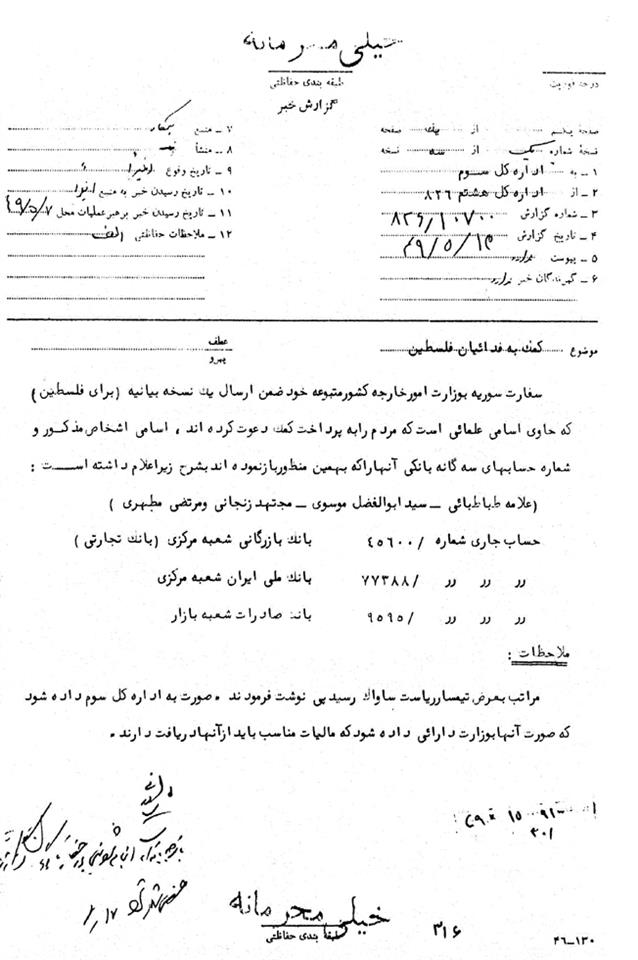 خیلی محرمانه
طبقه بندی حفاظتی
گزارش خبر
درجه فوریت
صفحه یکم از یک صفحه
نسخه شماره یک از سه نسخه
۱ – به اداره کل سوم
۲ – از اداره کل هشتم ۸۲۶
۳ – شماره گزارش ۸۲۶/۱۰۷۰۰
۴ – تاریخ گزارش ۴۹/۵/۱۴
۵ – پیوست ندارد
۶ – گیرندگان خبر ندارد
۷ – منبع
۸ – منشأ
۹ – تاریخ وقوع اخیرا
۱۰ – تاریخ رسیدن خبر به منبع اخیرا
۱۱ – تاریخ رسیدن خبر برهبر عملیات محل ۴۹/۵/۷
۱۲ – ملاحظات حفاظتی الف
موضوع کمک به فدائیان فلسطین
عطف
پیرو
سفارت سوریه بوزارت امورخارجه کشورمتبوعه خود ضمن ارسال یک نسخه بیانیه (برای فلسطین)
که حاوی اسامی علمائی است که مردم رابه پرداخت کمک دعوت کرده اند ، اسامی اشخاص مذکور و
شماره حسابهای سه گانه بانکی آنهاراکه بهمین منظوربازنموده اند بشرح زیراعلام داشته است :
(علامه طباطبائی – سید ابوالفضل موسوی – مجتهد زنجانی ومرتضی مطهری )
حساب جاری شماره /۴۵۶۰۰ بانک بازرگانی شعبه مرکزی (بانک تجارتی )
رر رر رر /۷۷۳۸۸ بانک ملی ایران شعبه مرکزی
رر رر رر /۹۵۹۵ بانک صادرات شعبه بازار
ملاحظات :
مراتب بعرض تیمسارریاست ساواک رسید پی نوشت فرمودند . صورت به اداره کل سوم داده شود
که صورت آنهابوزارت دارائی داده شود که مالیات مناسب باید ازآنهادریافت دارند .
خیلی محرمانه
طبقه بندی حفاظتی
۳۱۶
۴۶–۱۳۰